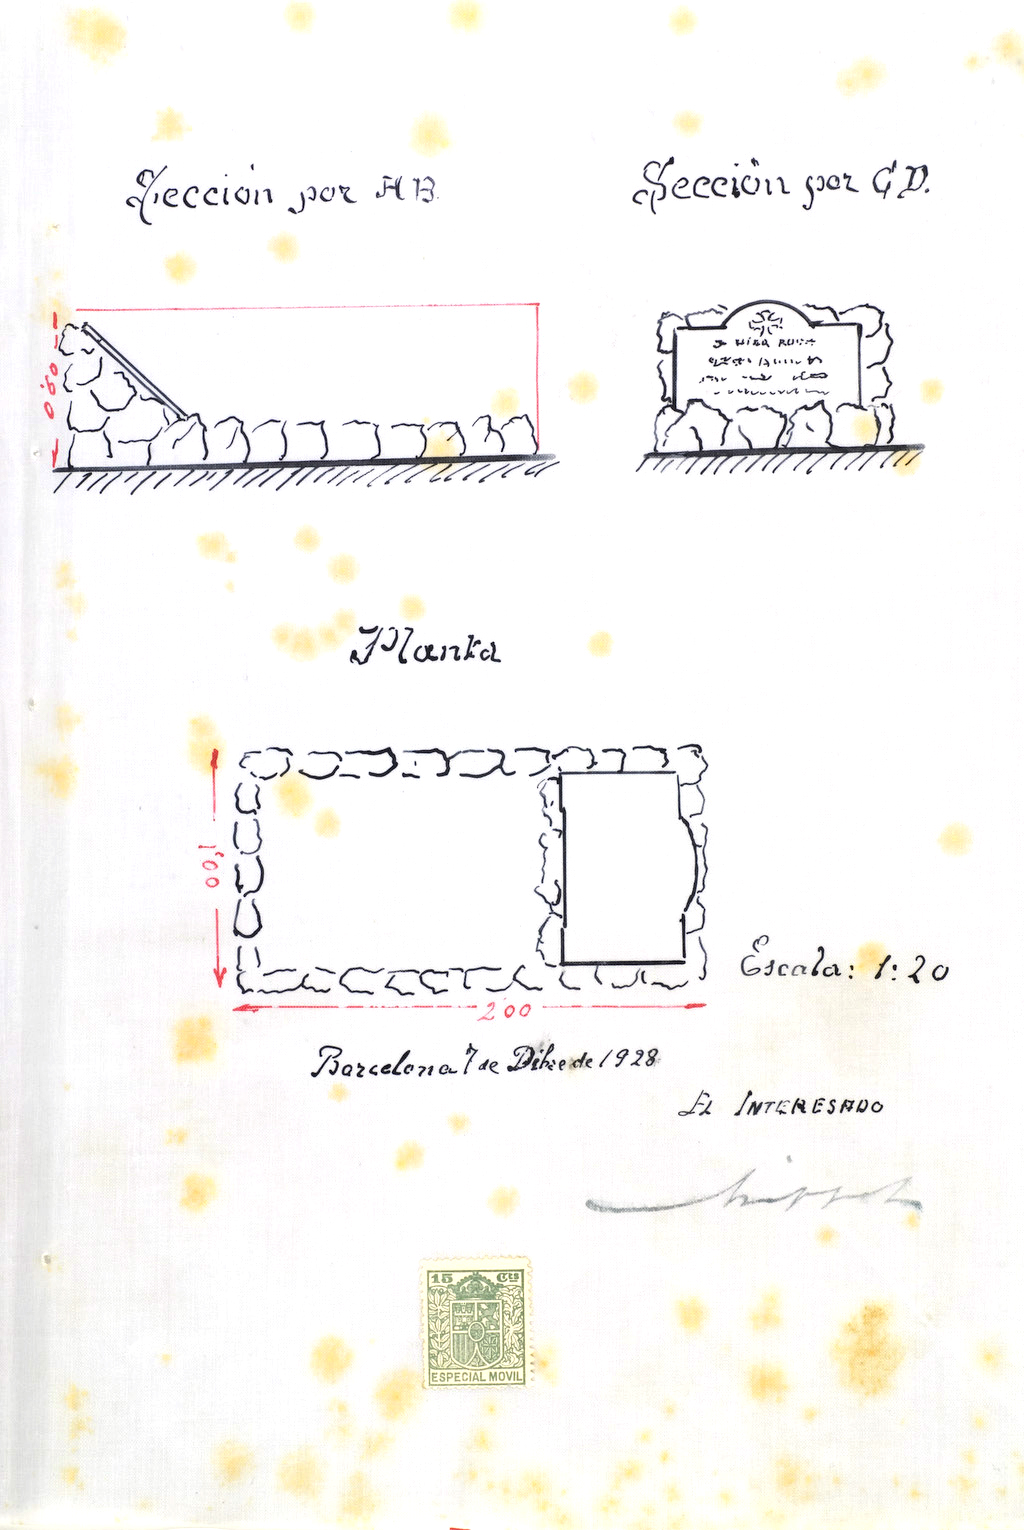 Sección por A B.
Sección por C D.
0,60
Planta
1,00
Escala: 1:20
2 00
Barcelona 7 de Dibre de 1928
EL INTERESADO
15 Cts
ESPECIAL MOVIL